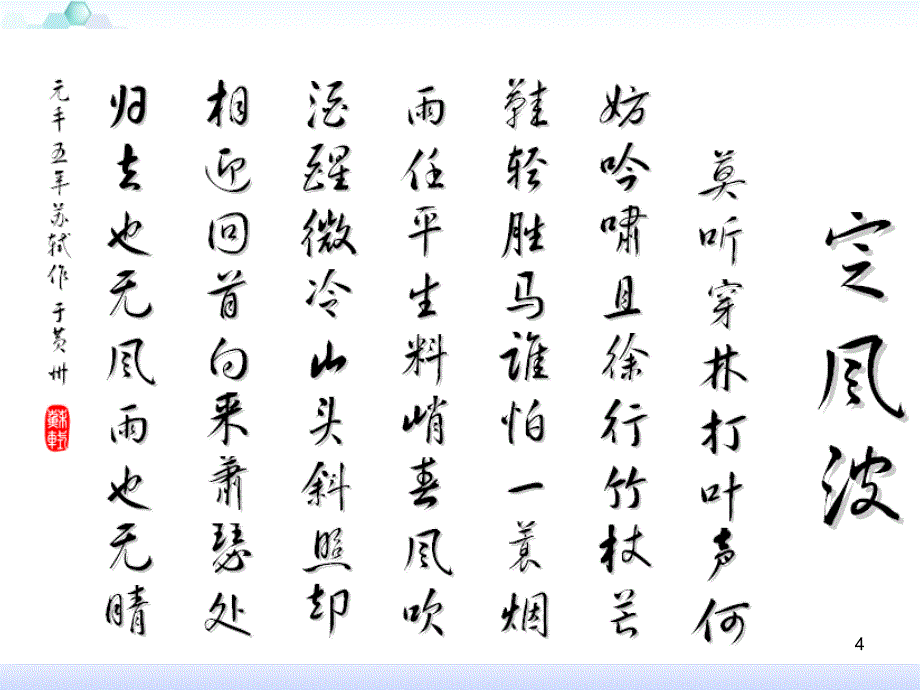 定风波
莫听穿林打叶声何
妨吟啸且徐行竹杖芒
鞋轻胜马谁怕一蓑烟
雨任平生料峭春风吹
酒醒微冷山头斜照却
相迎回首向来萧瑟处
归去也无风雨也无晴
元丰五年苏轼作于黄州
蘇軾
4